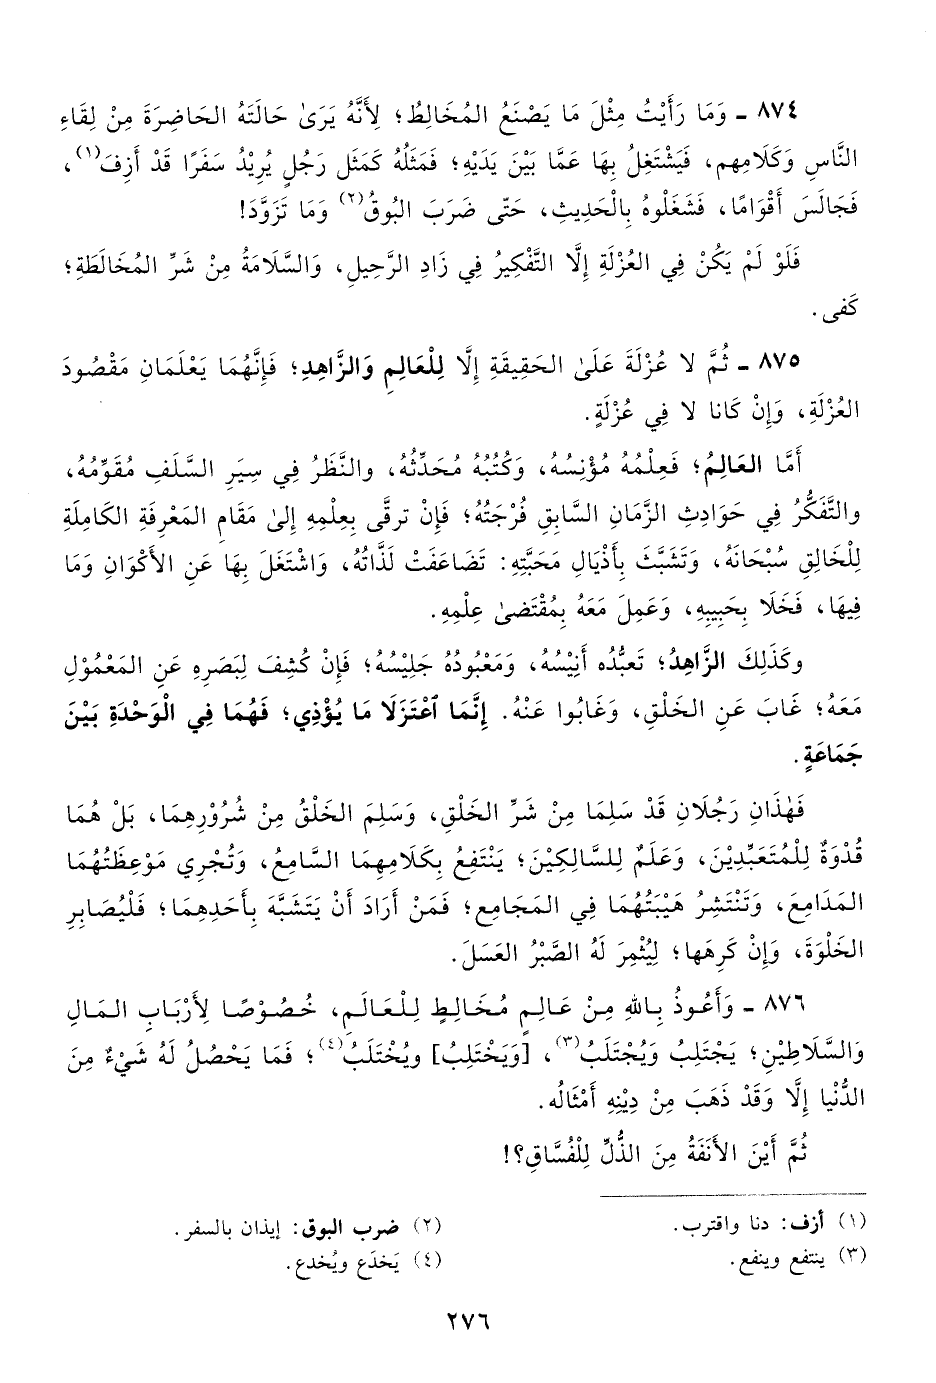 ٨٧٤ ـ وَمَا رَأَيْتُ مِثْلَ مَا يَصْنَعُ المُخَالِطُ؛ لِأَنَّهُ يَرَىٰ حَالَتَهُ الحَاضِرَةَ مِنْ لِقَاءِ
النَّاسِ وَكَلَامِهِم، فَيَشْتَغِلُ بِهَا عَمَّا بَيْنَ يَدَيْهِ؛ فَمَثَلُهُ كَمَثَلِ رَجُلٍ يُرِيْدُ سَفَرًا قَدْ أَزِفَ(١)،
فَجَالَسَ أَقْوَامًا، فَشَغَلُوهُ بِالْحَدِيثِ، حَتّى ضَرَبَ البُوقُ(٢) وَمَا تَزَوَّدَ!
فَلَوْ لَمْ يَكُنْ فِي العُزْلَةِ إِلَّا التَّفْكِيرُ فِي زَادِ الرَّحِيلِ، وَالسَّلَامَةُ مِنْ شَرِّ المُخَالَطَةِ؛
كَفى.
٨٧٥ ـ ثُمَّ لا عُزْلَةَ عَلَىٰ الحَقِيقَةِ إِلَّا لِلْعَالِمِ وَالزَّاهِدِ؛ فَإِنَّهُمَا يَعْلَمَانِ مَقْصُودَ
العُزْلَةِ، وَإِنْ كَانا لا فِي عُزْلَةٍ.
أَمَّا العَالِمُ؛ فَعِلْمُهُ مُؤْنِسُهُ، وَكُتُبُهُ مُحَدِّثُهُ، والنَّظَرُ فِي سِيَرِ السَّلَفِ مُقَوِّمُهُ،
والتَّفَكُّرُ فِي حَوَادِثِ الزَّمَانِ السَّابِقِ فُرْجَتُهُ؛ فَإِنْ ترقّى بِعِلْمِهِ إِلىٰ مَقَامِ المَعْرِفَةِ الكَامِلَةِ
لِلْخَالِقِ سُبْحَانَهُ، وَتَشَبَّثَ بِأَذْيَالِ مَحَبَّتِهِ: تَضَاعَفَتْ لَذَّاتُهُ، وَاشْتَغَلَ بِهَا عَنِ الأَكْوَانِ وَمَا
فِيهَا، فَخَلَا بِحَبِيبِهِ، وَعَمِلَ مَعَهُ بِمُقْتَضىٰ عِلْمِهِ.
وكَذلِكَ الزَّاهِدُ؛ تَعبُّدُه أَنِيسُهُ، وَمَعْبُودُهُ جَلِيْسُهُ؛ فَإِنْ كُشِفَ لِبَصَرِهِ عَنِ المَعْمُوْلِ
مَعَهُ؛ غَابَ عَنِ الخَلْقِ، وَغَابُوا عَنْهُ. إِنَّمَا ٱعْتَزَلَا مَا يُؤْذِي؛ فَهُمَا فِي الْوَحْدَةِ بَيْنَ
جَمَاعَةٍ.
فَهٰذَانِ رَجُلَانِ قَدْ سَلِمَا مِنْ شَرِّ الخَلْقِ، وَسَلِمَ الخَلْقُ مِنْ شُرُوْرِهِمَا، بَلْ هُمَا
قُدْوَةٌ لِلْمُتَعَبِّدِيْنَ، وَعَلَمٌ لِلسَّالِكِيْنَ؛ يَنْتَفِعُ بِكَلَامِهِمَا السَّامِعُ، وَتُجْرِي مَوْعِظَتُهُمَا
المَدَامِعَ، وَتَنْتَشِرُ هَيْبَتُهُمَا فِي المَجَامِعِ؛ فَمَنْ أَرَادَ أَنْ يَتَشَبَّهَ بِأَحَدِهِمَا؛ فَلْيُصَابِرِ
الخَلْوَةَ، وَإِنْ كَرِهَها؛ لِيُثْمِرَ لَهُ الصَّبْرُ العَسَلَ.
٨٧٦ ـ وَأَعُوذُ بِاللهِ مِنْ عَالِمٍ مُخَالِطٍ لِلْعَالَمِ، خُصُوْصًا لِأَرْبَابِ المَالِ
وَالسَّلَاطِيْنِ؛ يَجْتَلِبُ وَيُجْتَلَبُ(٣)، [وَيَخْتَلِبُ] ويُخْتَلَبُ(٤)؛ فَمَا يَحْصُلُ لَهُ شَيْءٌ مِنَ
الدُّنْيا إِلَّا وَقَدْ ذَهَبَ مِنْ دِيْنِهِ أَمْثَالُه.
ثُمَّ أَيْنَ الأَنَفَةُ مِنَ الذُّلِّ لِلْفُسَّاقِ؟!
(١) أزف: دنا واقترب.
(٢) ضرب البوق: إيذان بالسفر.
(٣) ينتفع وينفع.
(٤) يَخدَع ويُخدع.
٢٧٦